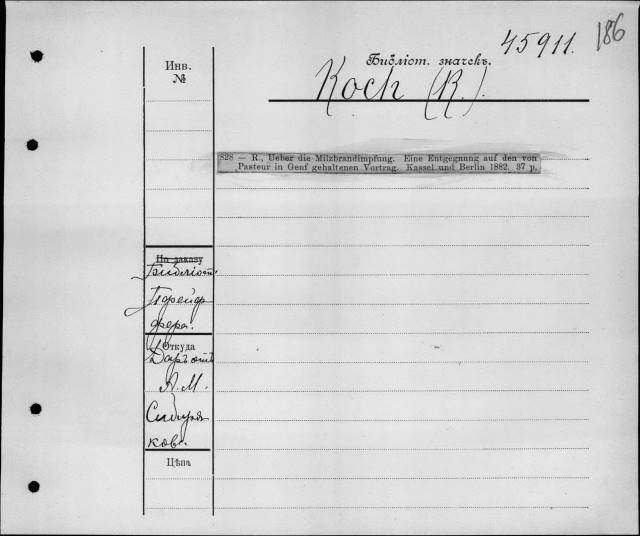 186
45911.
Библіот. значекъ.
Koch (R.).
Инв.
№
828 — R., Ueber die Milzbrandimpfung. Eine Entgegnung auf den von
Pasteur in Genf gehaltenen Vortrag. Kassel und Berlin 1882. 37 p.
На заказу
Библіот.
Пфейф
фера.
Откуда
Даръ отъ
А. М.
Сибиря
кова.
Цѣна